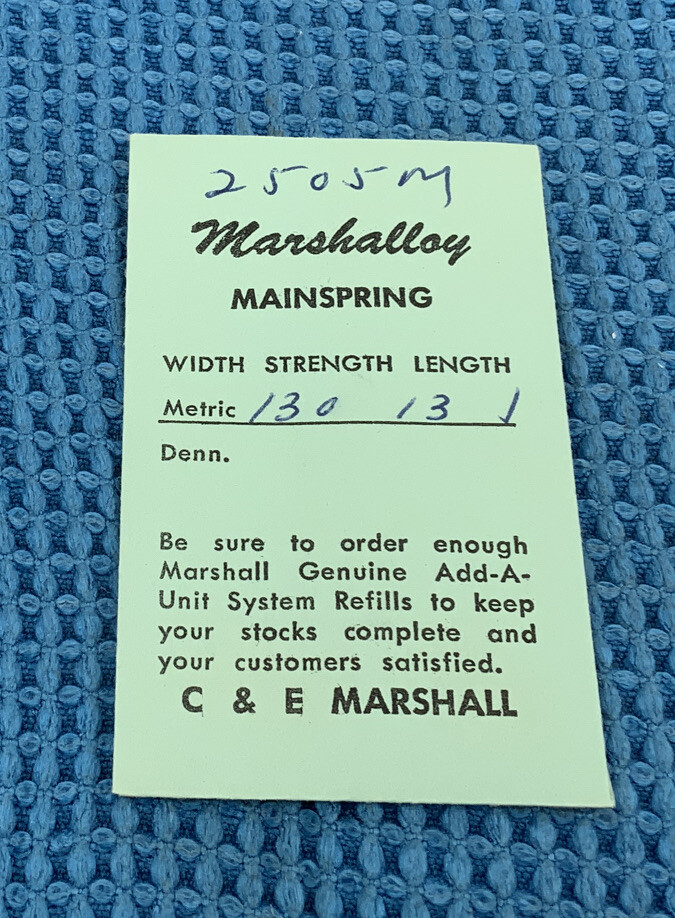 2505M
Marshalloy
MAINSPRING
WIDTH STRENGTH LENGTH
Metric 130 13 1
Denn.
Be sure to order enough
Marshall Genuine Add-A-
Unit System Refills to keep
your stocks complete and
your customers satisfied.
C & E MARSHALL